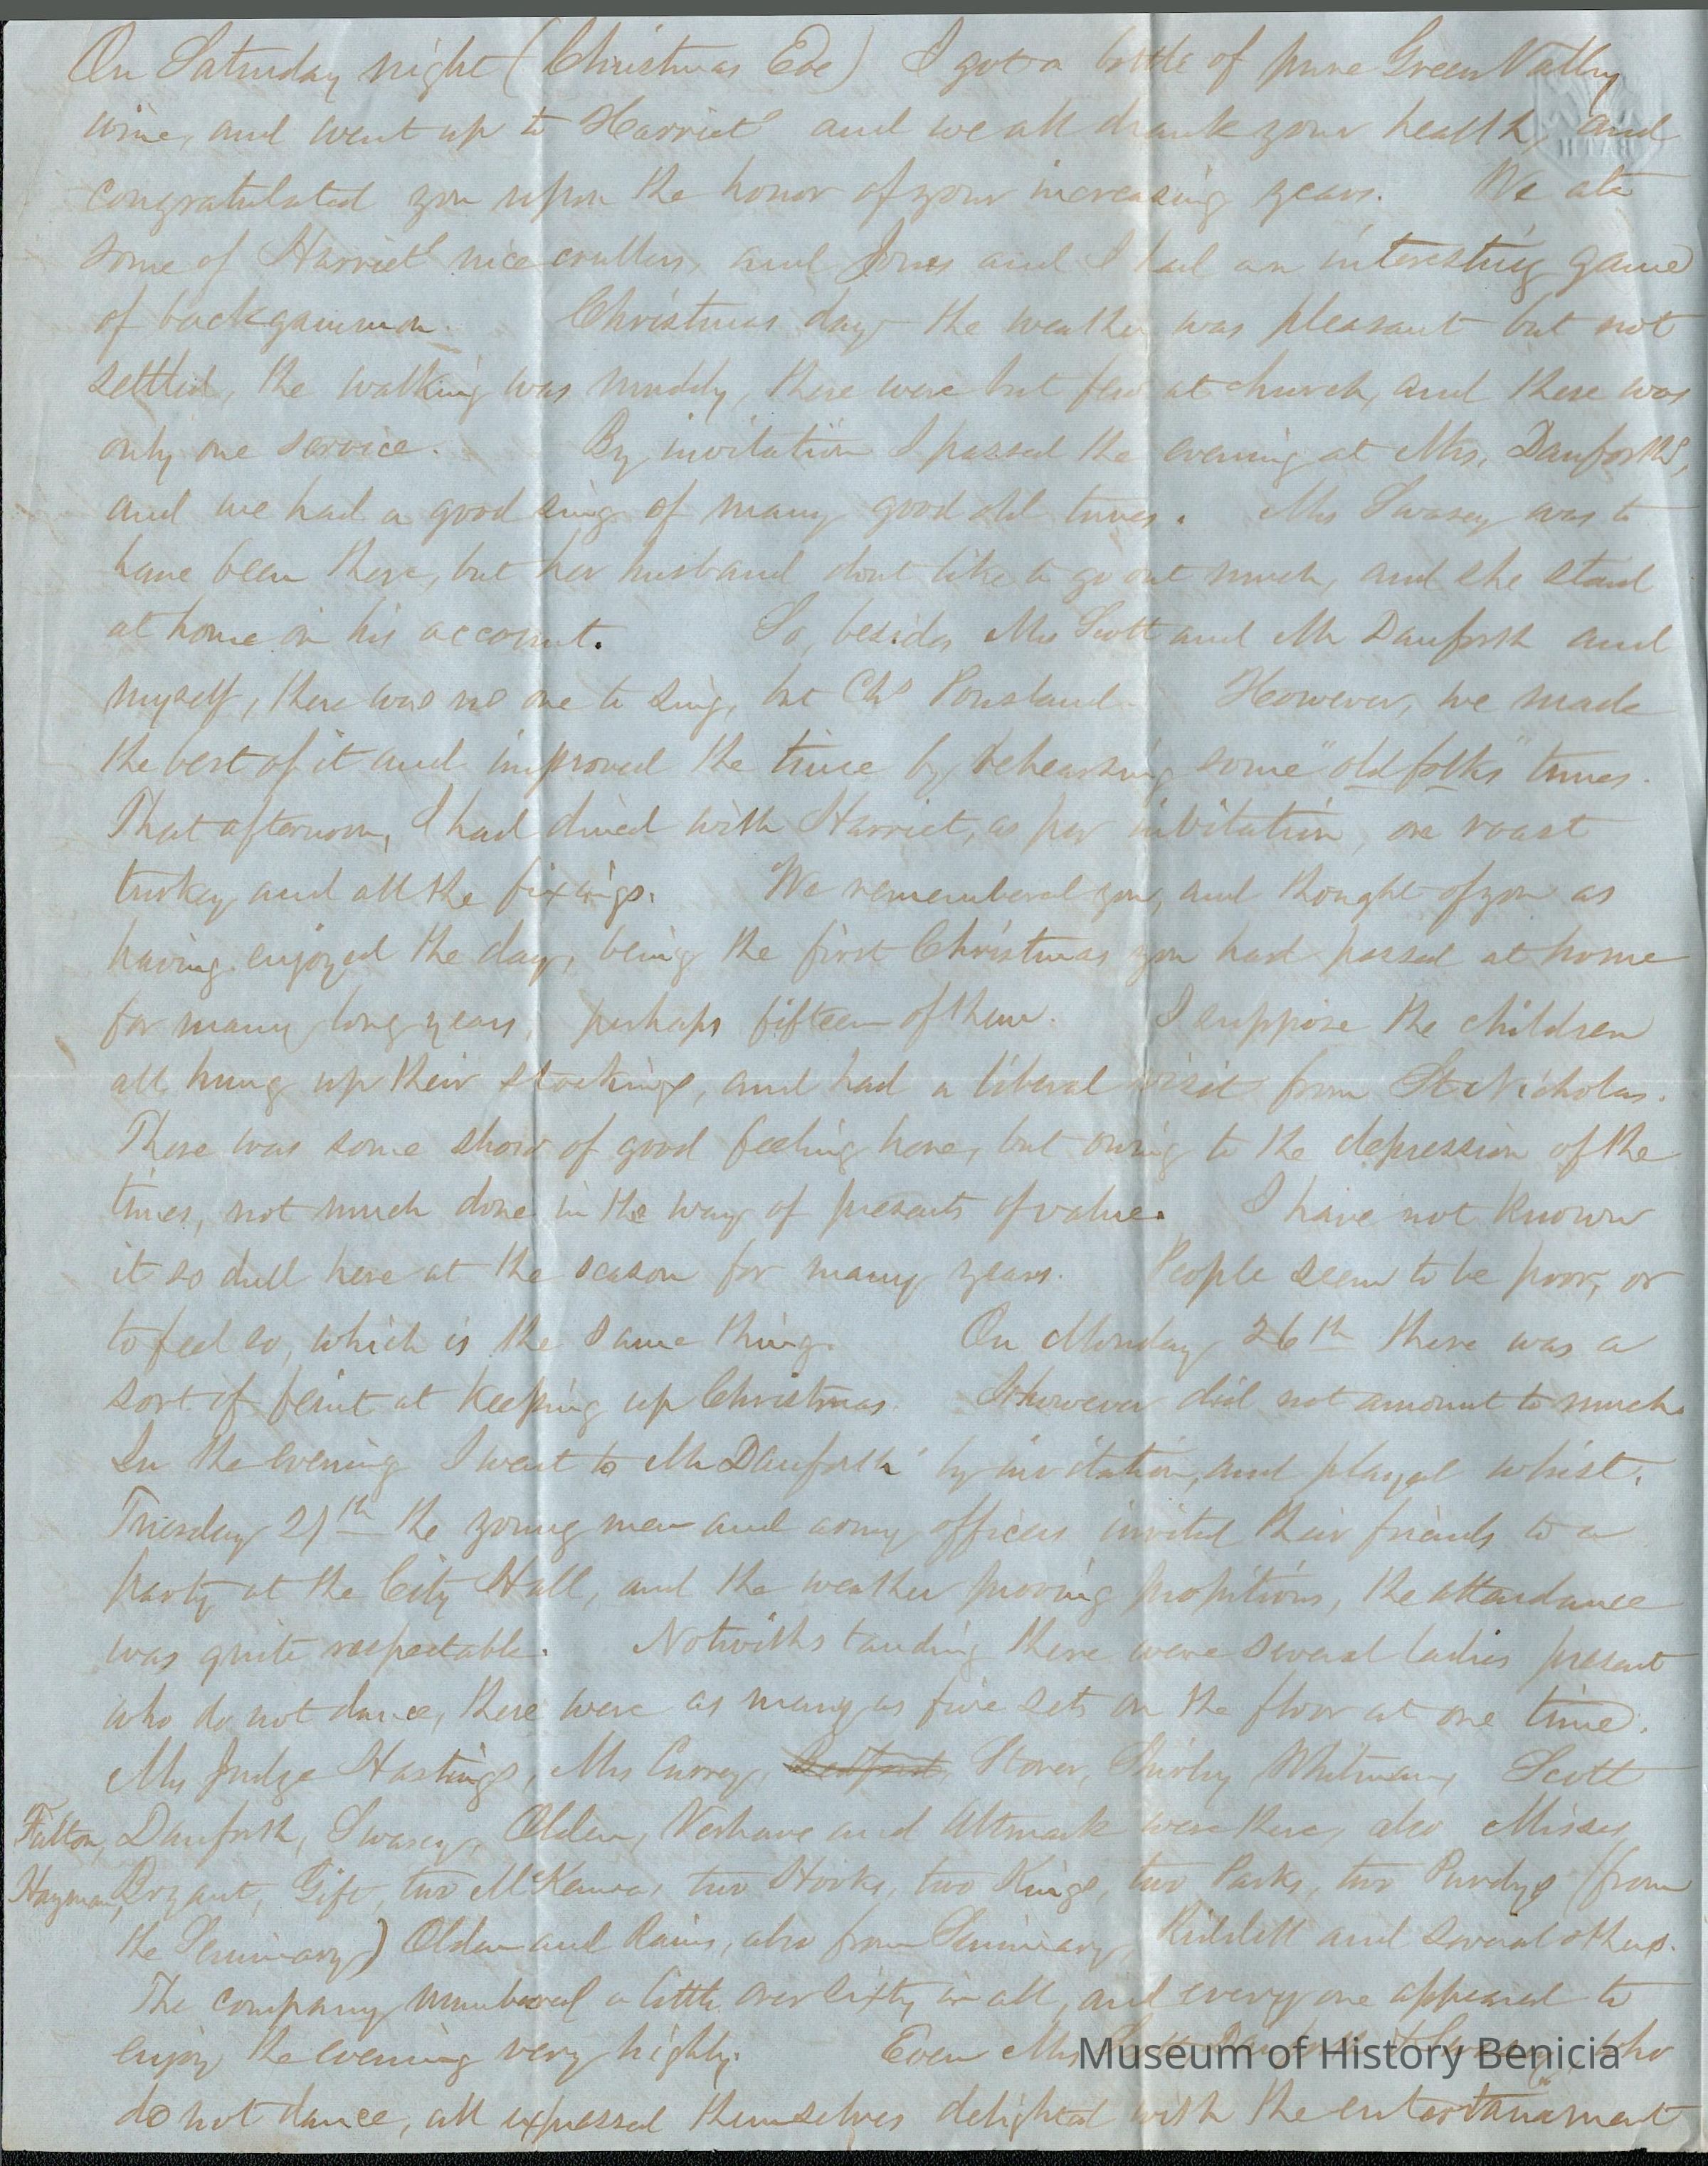 On Saturday night (Christmas Eve) I got a bottle of pure Green Valley
wine, and went up to Harriet's and we all drank your health, and
congratulated you upon the honor of your increasing years. We ate
some of Harriet's nice crullers, and Jones and I had an interesting game
of backgammon. Christmas day the weather was pleasant but not
settled, the walking was muddy, there were but few at church, and there was
only one service. By invitation I passed the evening at Mrs. Danforth's,
and we had a good sing of many good old tunes. Mrs Swasey was to
have been there, but her husband dont like to go out much, and she staid
at home on his account. So, besides Mrs Scott and Mr Danforth and
myself, there was no one to sing, but Chs Pousland. However, we made
the best of it and improved the time by rehearsing some "old folks" tunes.
That afternoon, I had dined with Harriet, as per invitation, on roast
turkey and all the fixings. We remembered you, and thought of you as
having enjoyed the day, being the first Christmas you had passed at home
for many long years, perhaps fifteen of them. I suppose the children
all hung up their stockings, and had a liberal visit from St Nicholas.
There was some show of good feeling here, but owing to the depression of the
times, not much done in the way of presents of value. I have not known
it so dull here at the season for many years. People seem to be poor, or
to feel so, which is the same thing. On Monday 26th there was a
sort of feint at keeping up Christmas. It however did not amount to much.
In the evening I went to Mr Danforth's by invitation, and played whist.
Tuesday 27th the young men and army officers invited their friends to a
party at the City Hall, and the weather proving propitious, the attendance
was quite respectable. Notwithstanding there were several ladies present
who do not dance, there were as many as five sets on the floor at one time.
Mrs Judge Hastings, Mrs Currey, Stover, Shirley, Whitman, Scott
Fulton, Danforth, Swasey, Olden, Verhave and Altmark were there, also Misses
Hayman, Bryant, Gift, two McKennas two Hooks, two Kings, two Parks, two Purdys (from
the Seminary) Olden and Rains, also from Seminary, Riddell and several others.
The company numbered a little over sixty in all, and every one appeared to
enjoy the evening very highly. Even Mrs who
do not dance, all expressed themselves delighted with the entertainment
Museum of History Benicia